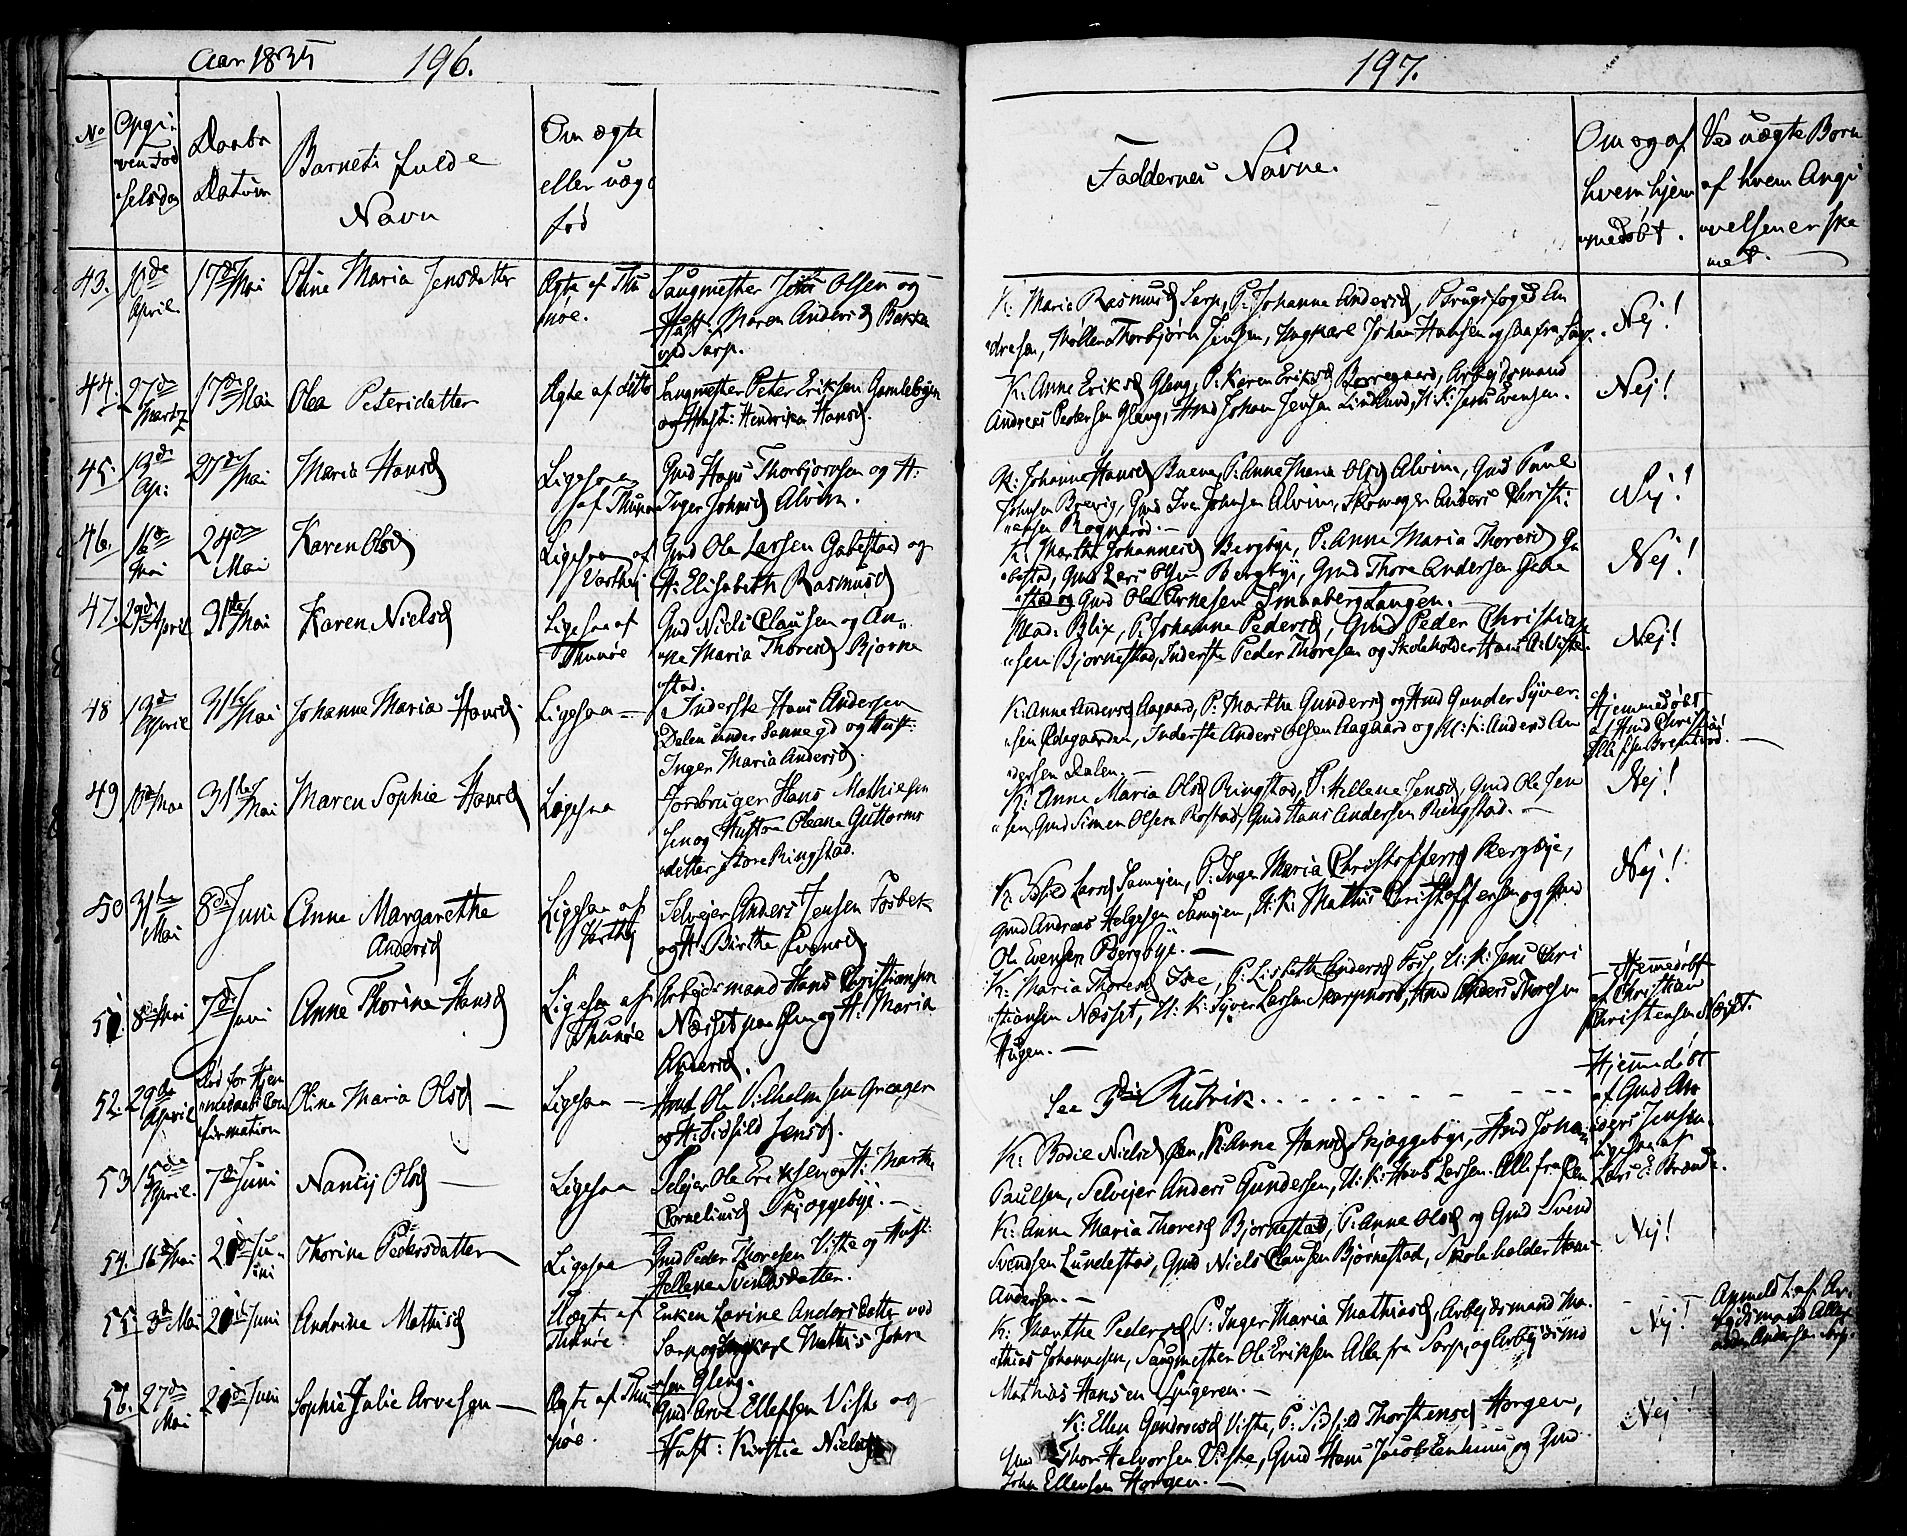 Aar 1835
196.
No
Opgi-
ven Fød
selsdag
Daabs
Datum
Barnets fulde
Navn
Om ægte
eller uæg
fød
43.
10de
April
17de Mai
Oline Maria Jensdatter
Ægte af Thu
nøe.
Saugmester Jens Olsen og
Hust: Maren Andersd Bakke
ved Sarp.
44.
27de
Martz
17de Mai
Olea Petersdatter
Ægte af ditto
Saugmester Peter Eriksen Gamlebyen
og Hust: Hendrikea Hansd.
45.
13de
Ap:
27de Mai
Maria Hansd
Ligesaa
af Thunøe
Gmd Hans Thorbjørnsen og H:
Inger Johnsd Alvim.
46.
16de
Mai
24de
Mai
Karen Olsd
Ligesaa af
Varthej
Gmd Ole Larsen Gabestad og
H: Elisabeth Rasmusd
47.
29de April
31te Mai
Karen Nielsd
Ligesaa af
Thunøe
Gmd Niels Clausen og An„
„ne Maria Thoresd Bjørne
stad.
48
19de
April
31te Mai
Johanne Maria Hansd.
Ligesaa —
Inderste Hans Andersen
Dalen under Sannegd og Hust:
Inger Maria Andersd.
49
10de Mai
31te Mai
Maren Sophie Hansd
Ligesaa
Jordbruger Hans Mathiesen
sen og Hustru Oleana Guttorms
datter Store Ringstad.
50
31te
Mai
8de Juni
Anne Margarethe
Andersd
Ligesaa af
Varthej
Selvejer Anders Jensen Fosbek
og H: Birthe Evensd
51.
8de Mai
7de
Juni
Anne Thorine Hansd
Ligesaa af
Thunøe
Arbejdsmand Hans Christiansen
Næsset paa Øen og H: Maria
Andersd.
52.
29de
April
Død før Hjem
medaabs Con
firmation
Oline Maria Olsd —
Ligesaa —
Hmd Ole Vilhelmsen Grøager
og H: Sidsild Jensd.
53
15de
April.
7de Juni
Nancÿ Olsd —
Ligesaa
Selvejer Ole Eriksen og H: Marthe
Cornelinusd Skjøggebye. —
54.
16de Mai
21de Ju-
ni
Thorine Pedersdatter
Ligesaa
Gmd Peder Thoresen Viste og Hust:
Hellene Svendsdatter.
55.
3de Mai
21de Juni
Andrine Mathisd
Uægte af
Thunøe
Enken Lavine Andersdatter ved
Sarp og Ungkarl Mathis Johan
sen Gleng.
56.
27de
Mai
21de Juni
Sophie Julie Arvesen —
Ægte af Thu
nøe.
Gmd Arve Ellefsen Viste og
Hust: Kirstie Nielsd
197.
Faddernes Navne.
Om og af
hvem hjem
medøbt.
Ved uægte Børn
af hvem Angi
velsen er ske
met. —
K: Maria Rasmusd Sarp, P: Johanne Andersd, Brugsfoged An
dresen, Møller Thorbjørn Jensen, Ungkarl Johan Hansen og saa fra Sarp.
Nej!
K: Anne Eriksd Gleng, P: Karen Eriksd Borregaard, Arbejdsmand
Andreas Pedersen Gleng, Hmd Johan Jensen Lindlund, U: K: Jens Evensen.
Nej!
K: Johanne Hansd Buene, P: Anne Maria Olsd Alvim, Gmd Poul
Johnsen Brevig, Gmd Iver Johnsen Alvim, Skoemager Anders Christi:
„ansen Rognerød. —
Nej!
K: Marthe Johannesd Bergbye, P: Anne Maria Thoresd Ga
bestad, Gmd Lars Olsen Bergbye, Gmd Thore Andersen Gabe
stad og Gmd Ole Arnesen Smaaberg Tangen. —
Nej!
Mad: Blix, P: Johanne Pedersd, Gmd Peder Christian
„sen Bjørnestad, Inderste Peder Thoresen og Skoleholder Hans A: Viste.
Nej!
K: Anne Andersd Aagaard, P: Marthe Gundersd og Hmd Gunder Syver-
„sen Ødegaarden, Inderste Anders Olsen Aagaard og U: K: Anders An
„dersen Dalen. —
Hjemmedøbt
af Hmd Christian
K: Anne Maria Olsd Ringstad, P: Hellene Jensd, Gmd Ole Jen
„sen, Gmd Simen Olsen Rostad, Gmd Hans Andersen Ringstad. —
Nej!
K: Sidsel Larsd Samejen, P: Inger Maria Christoffersd Bergbye,
Gmd Andreas Helgesen Samejen, U: K: Mathis Christoffersen og Gmd
Ole Evensen Bergbye. —
Nej!
K: Maria Thoresd Øee, P: Lisbeth Andersd Foss, U: K: Jens Chri
„stiansen Næsset, U: K: Syver Larsen Skarpnord, Hmd Anders Thoresen
Hugen. —
Hjemmedøbt
af Christian
Christensen Næset.
See 3die Rubrik. - - - - -
Hjemmedøbt
af Gmd An
ders Jensen.
K: Bodie Nielsd Øen, P: Anne Hansd Skjøggebye, Hmd Johan
Paulsen, Selvejer Anders Gundersen, U: K: Hans Larsen. Alle fra Øen
Ligesaa af
Lars E: Brende.
K: Anne Maria Thoresd Bjørnestad, P: Anne Olsd og Gmd Svend
Svendsen Lundestad, Gmd Niels Clausen Bjørnestad, Skoleholder Hans
Andersen. —
Nej!
K: Marthe Pedersd, P: Inger Maria Mathiasd, Arbejdsmand Ma-
„thias Johannesen, Saugmester Ole Eriksen Alle fra Sarp, og Arbejdsmd
Mathias Hansen Spigeren. —
Nej!
Anmeldt af Ar-
bejdsmand Alex
ander Andersen Sarp.
K: Ellen Gundersd Viste, P: Sidsild Thorstensd Horgen,
Gmd Thor Halvorsen Viste, Gmd Hans Jacob Lenhuus og Gmd
John Ellensen Horgen. —
Nej!